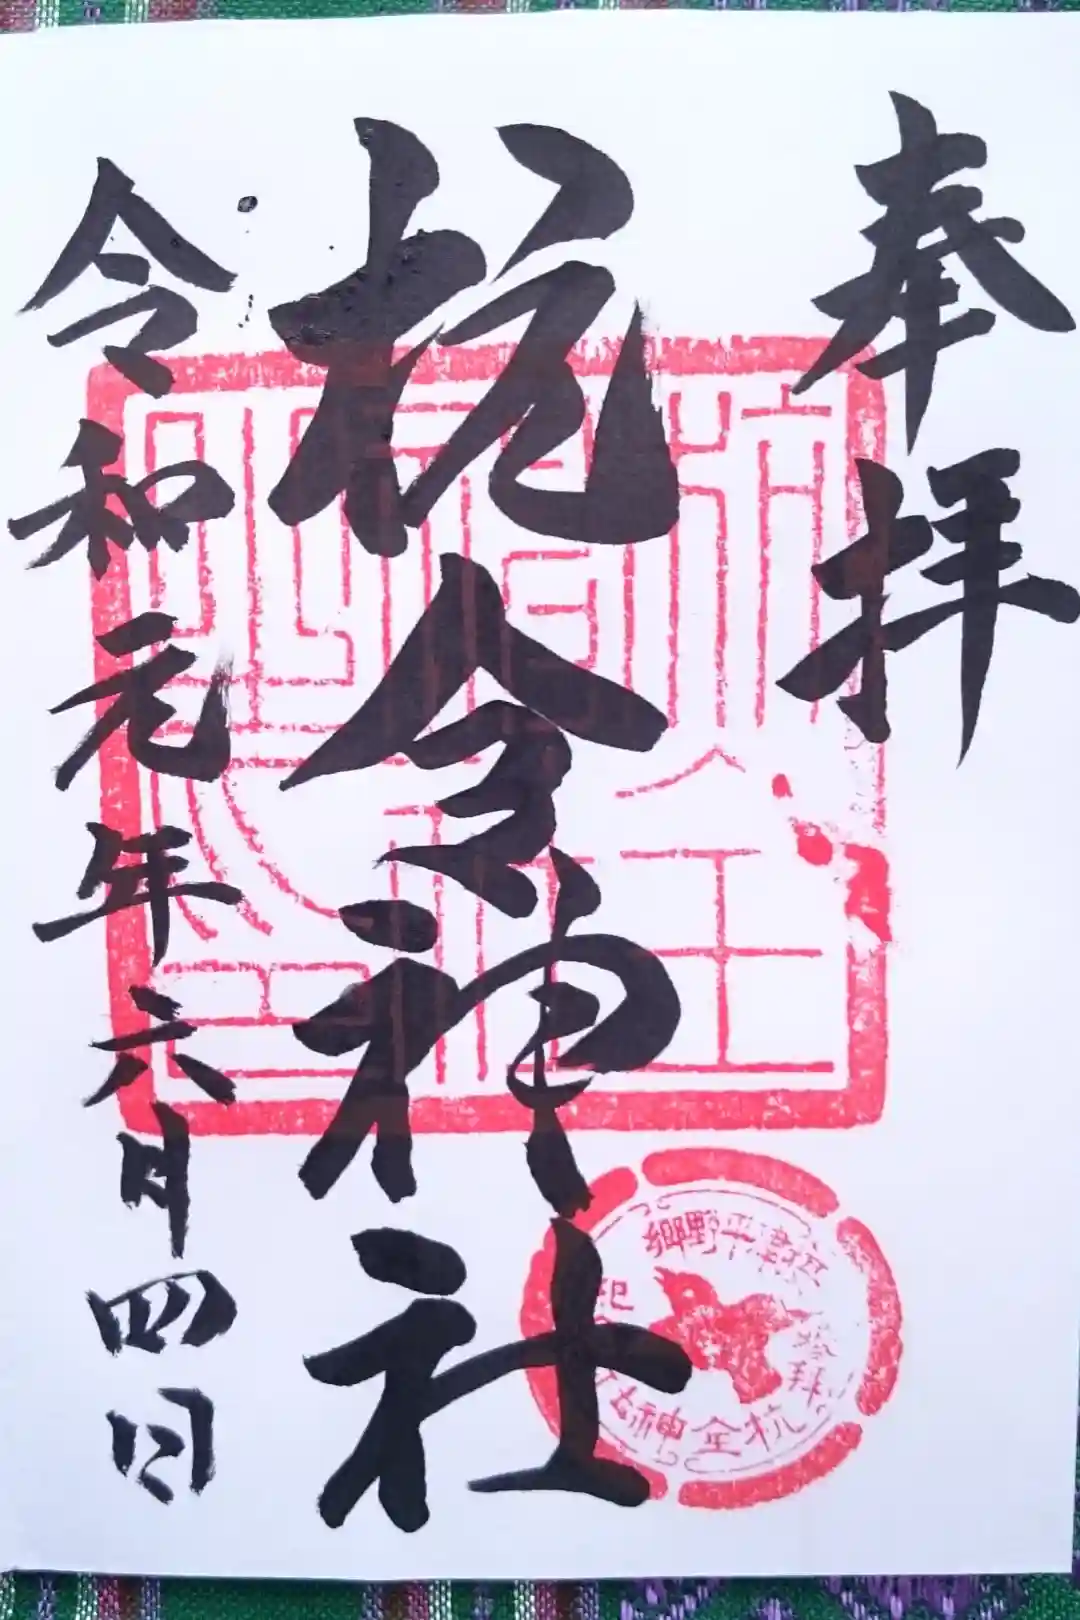 奉拝
杭全神社
令和元年六月四日
摂津平野郷
参拝
杭全神社